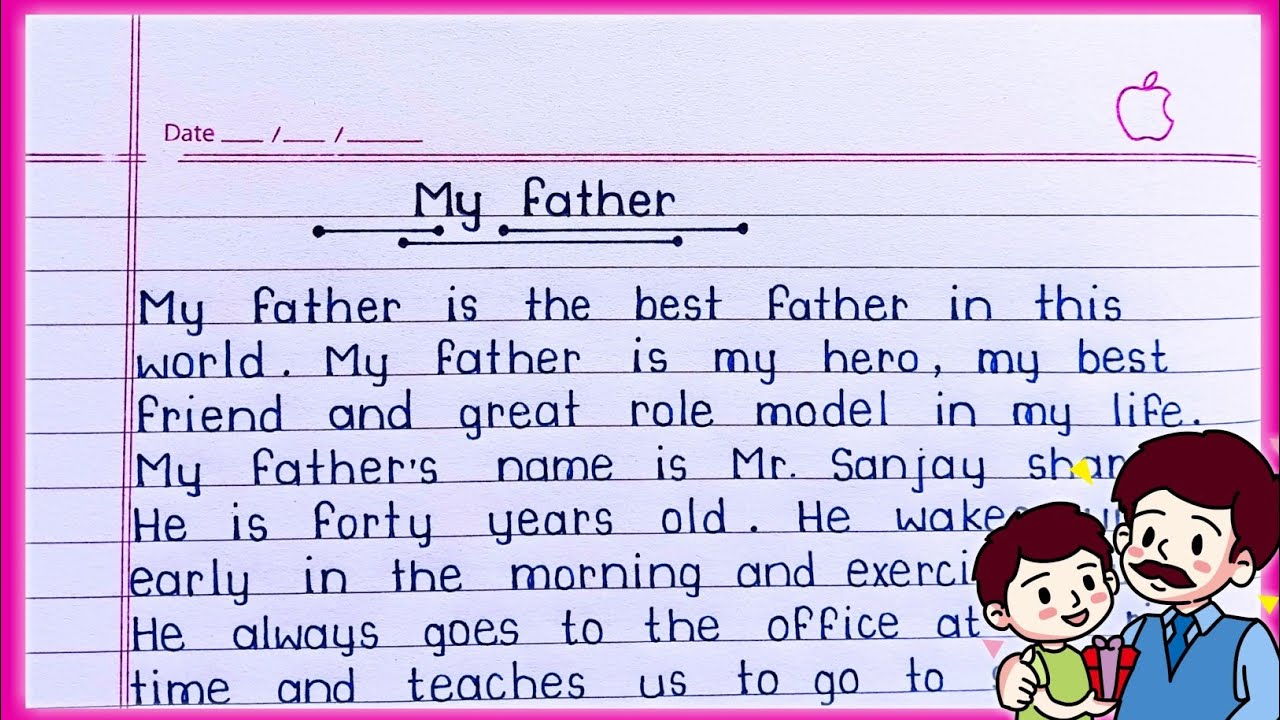 Date ___ /___ /______
My father
My father is the best father in this
world. My father is my hero, my best
friend and great role model in my life.
My father's name is Mr. Sanjay
He is forty years old. He
early in the morning and
He always goes to the office at
time and teaches us to go to